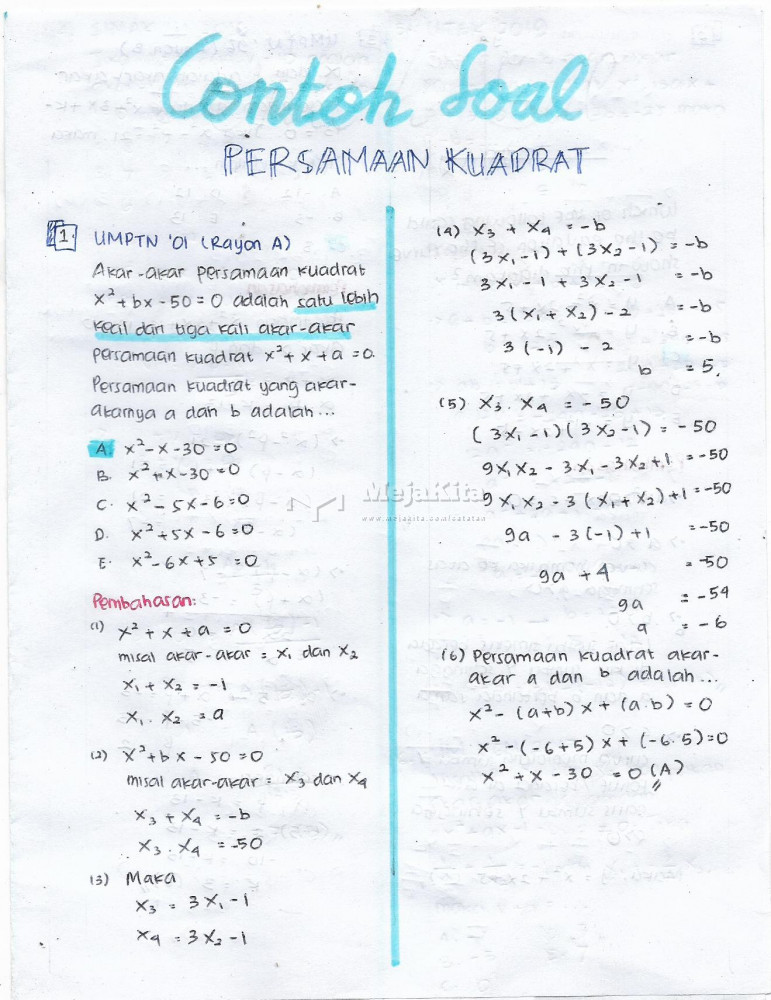 Contoh Soal
PERSAMAAN KUADRAT
1. UMPTN '01 (Rayon A)
Akar-akar persamaan kuadrat
x²+bx-50=0 adalah satu lebih
kecil dari tiga kali akar-akar
persamaan kuadrat x²+x+a=0.
Persamaan kuadrat yang akar-
akarnya a dan b adalah...
A. x²-x-30=0
B. x²+x-30=0
C. x²-5x-6=0
D. x²+5x-6=0
E. x²-6x+5=0
Pembahasan:
(1) x²+x+a=0
misal akar-akar = x₁ dan x₂
x₁+x₂ = -1
x₁.x₂ = a
(2) x²+bx-50=0
misal akar-akar = x₃ dan x₄
x₃+x₄ = -b
x₃.x₄ = -50
(3) Maka
x₃ = 3x₁-1
x₄ = 3x₂-1
(4) x₃+x₄ = -b
(3x₁-1)+(3x₂-1) = -b
3x₁-1+3x₂-1 = -b
3(x₁+x₂)-2 = -b
3(-1)-2 = -b
b = 5.
(5) x₃.x₄ = -50
(3x₁-1)(3x₂-1) = -50
9x₁x₂-3x₁-3x₂+1 = -50
9x₁x₂-3(x₁+x₂)+1 = -50
9a-3(-1)+1 = -50
9a+4 = -50
9a = -54
a = -6
(6) Persamaan kuadrat akar-
akar a dan b adalah...
x²-(a+b)x+(a.b)=0
x²-(-6+5)x+(-6.5)=0
x²+x-30 = 0 (A)
MejaKita
www.mejakita.com/catatan